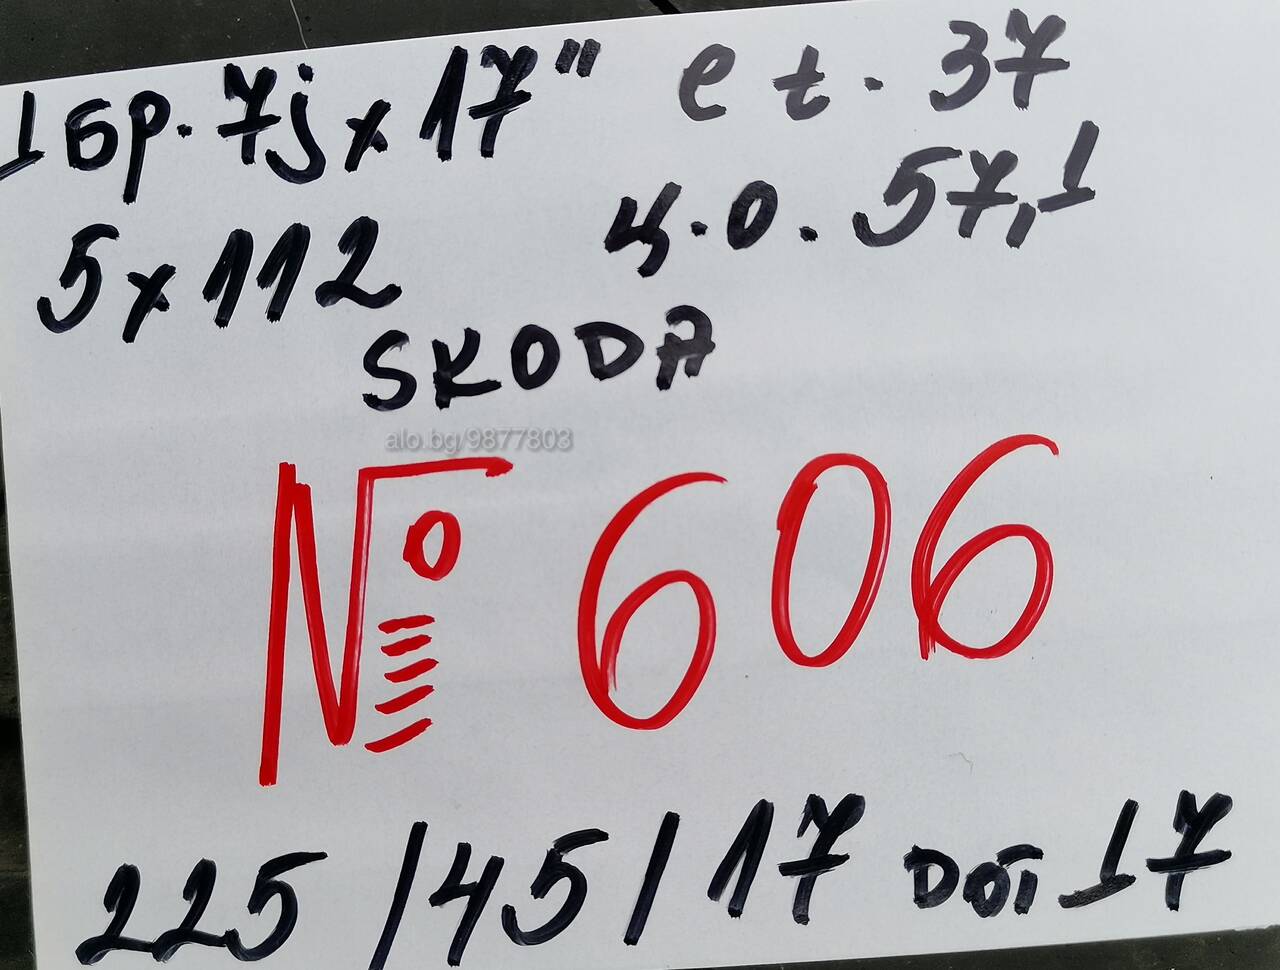 1 бр. 7j x 17" et. 37
5x112 ц.о. 57,1
SKODA
alo.bg/9877803
№ 606
225/45/17 DOT 17